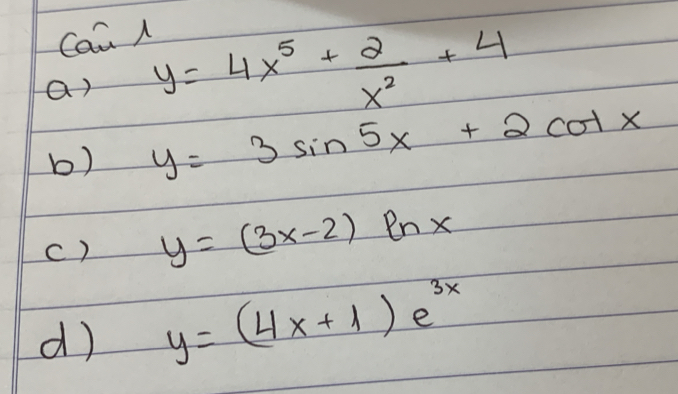 Câu 1
a) y = 4x⁵ + 2/x² + 4
b) y = 3 sin 5x + 2 cot x
c) y = (3x-2) ln x
d) y = (4x+1) e³ˣ